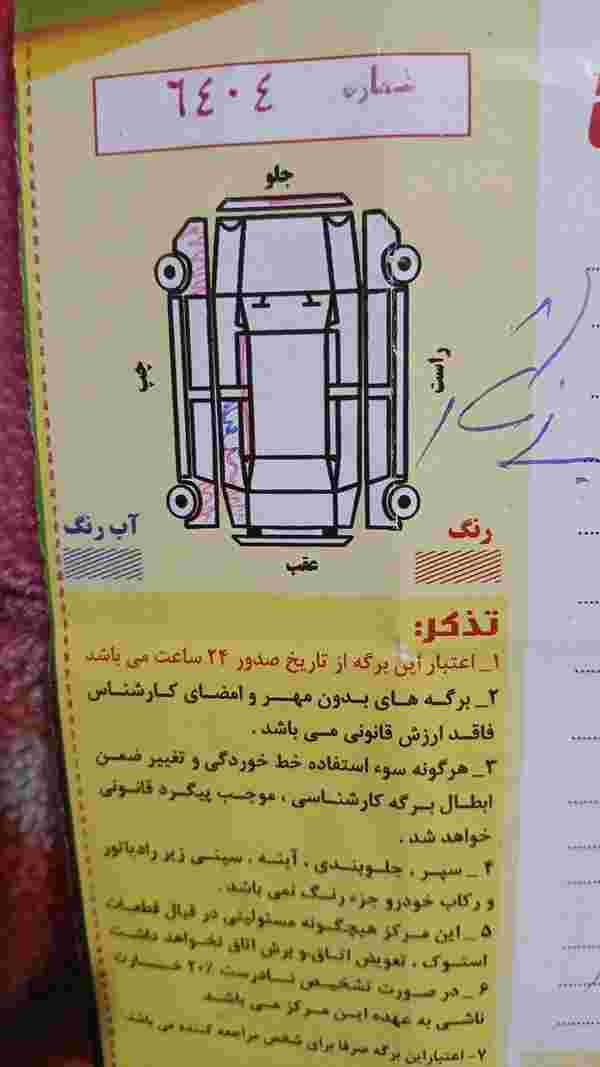 شماره ٦٤٠٤
جلو
چپ
راست
عقب
آب رنگ
رنگ
تذکر:
۱_ اعتبار این برگه از تاریخ صدور ۲۴ ساعت می باشد
۲_ برگه های بدون مهر و امضای کارشناس
فاقد ارزش قانونی می باشد .
۳_ هرگونه سوء استفاده خط خوردگی و تغییر ضمن
ابطال برگه کارشناسی ، موجب پیگرد قانونی
خواهد شد .
۴ _ سپر ، جلوبندی ، آینه ، سینی زیر رادیاتور
و رکاب خودرو جزء رنگ نمی باشد .
۵ _ این مرکز هیچگونه مسئولیتی در قبال قطعات
استوک ، تعویض اتاق و برش اتاق نخواهد داشت
۶ _ در صورت تشخیص نادرست ۲۰٪ خسارت
ناشی به عهده این مرکز می باشد
۷- اعتبار این برگه صرفا برای شخص مراجعه کننده می باشد.